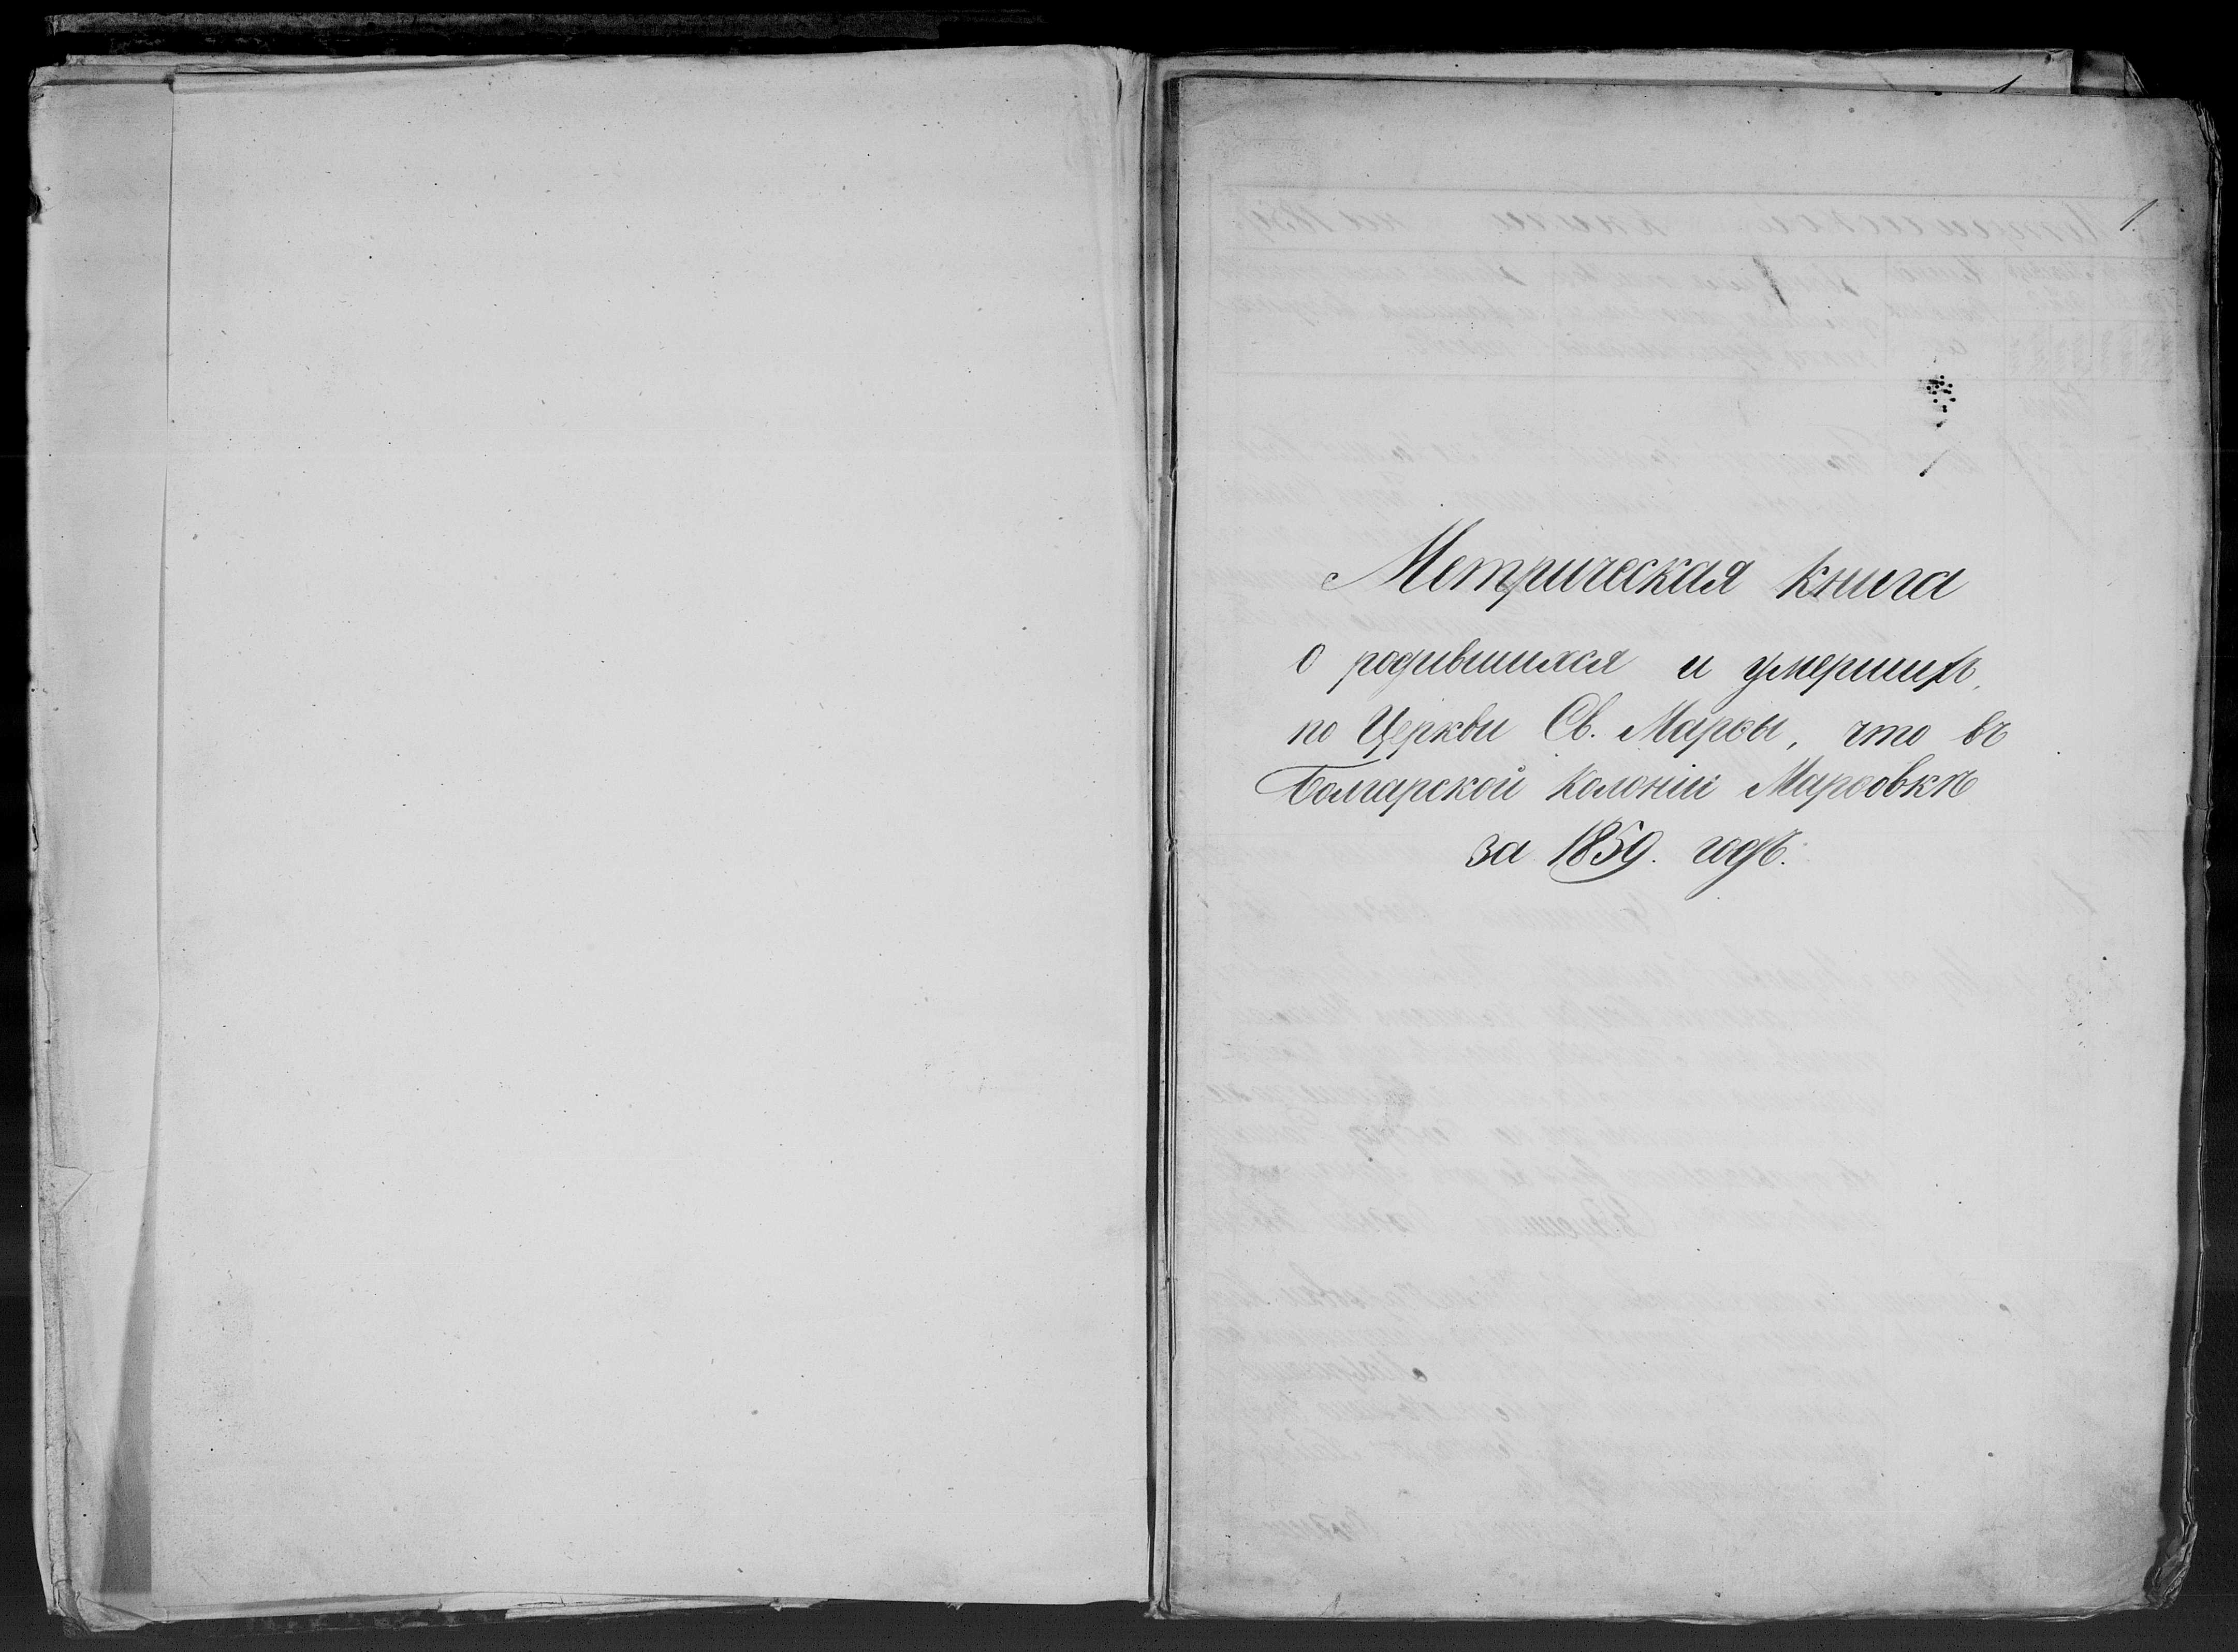 1.
Метрическая книга
о родившихся и умершихъ,
по Церкви Св. Марѳы, что въ
Болгарской Колоніи Марѳовкѣ
за 1859. годъ.